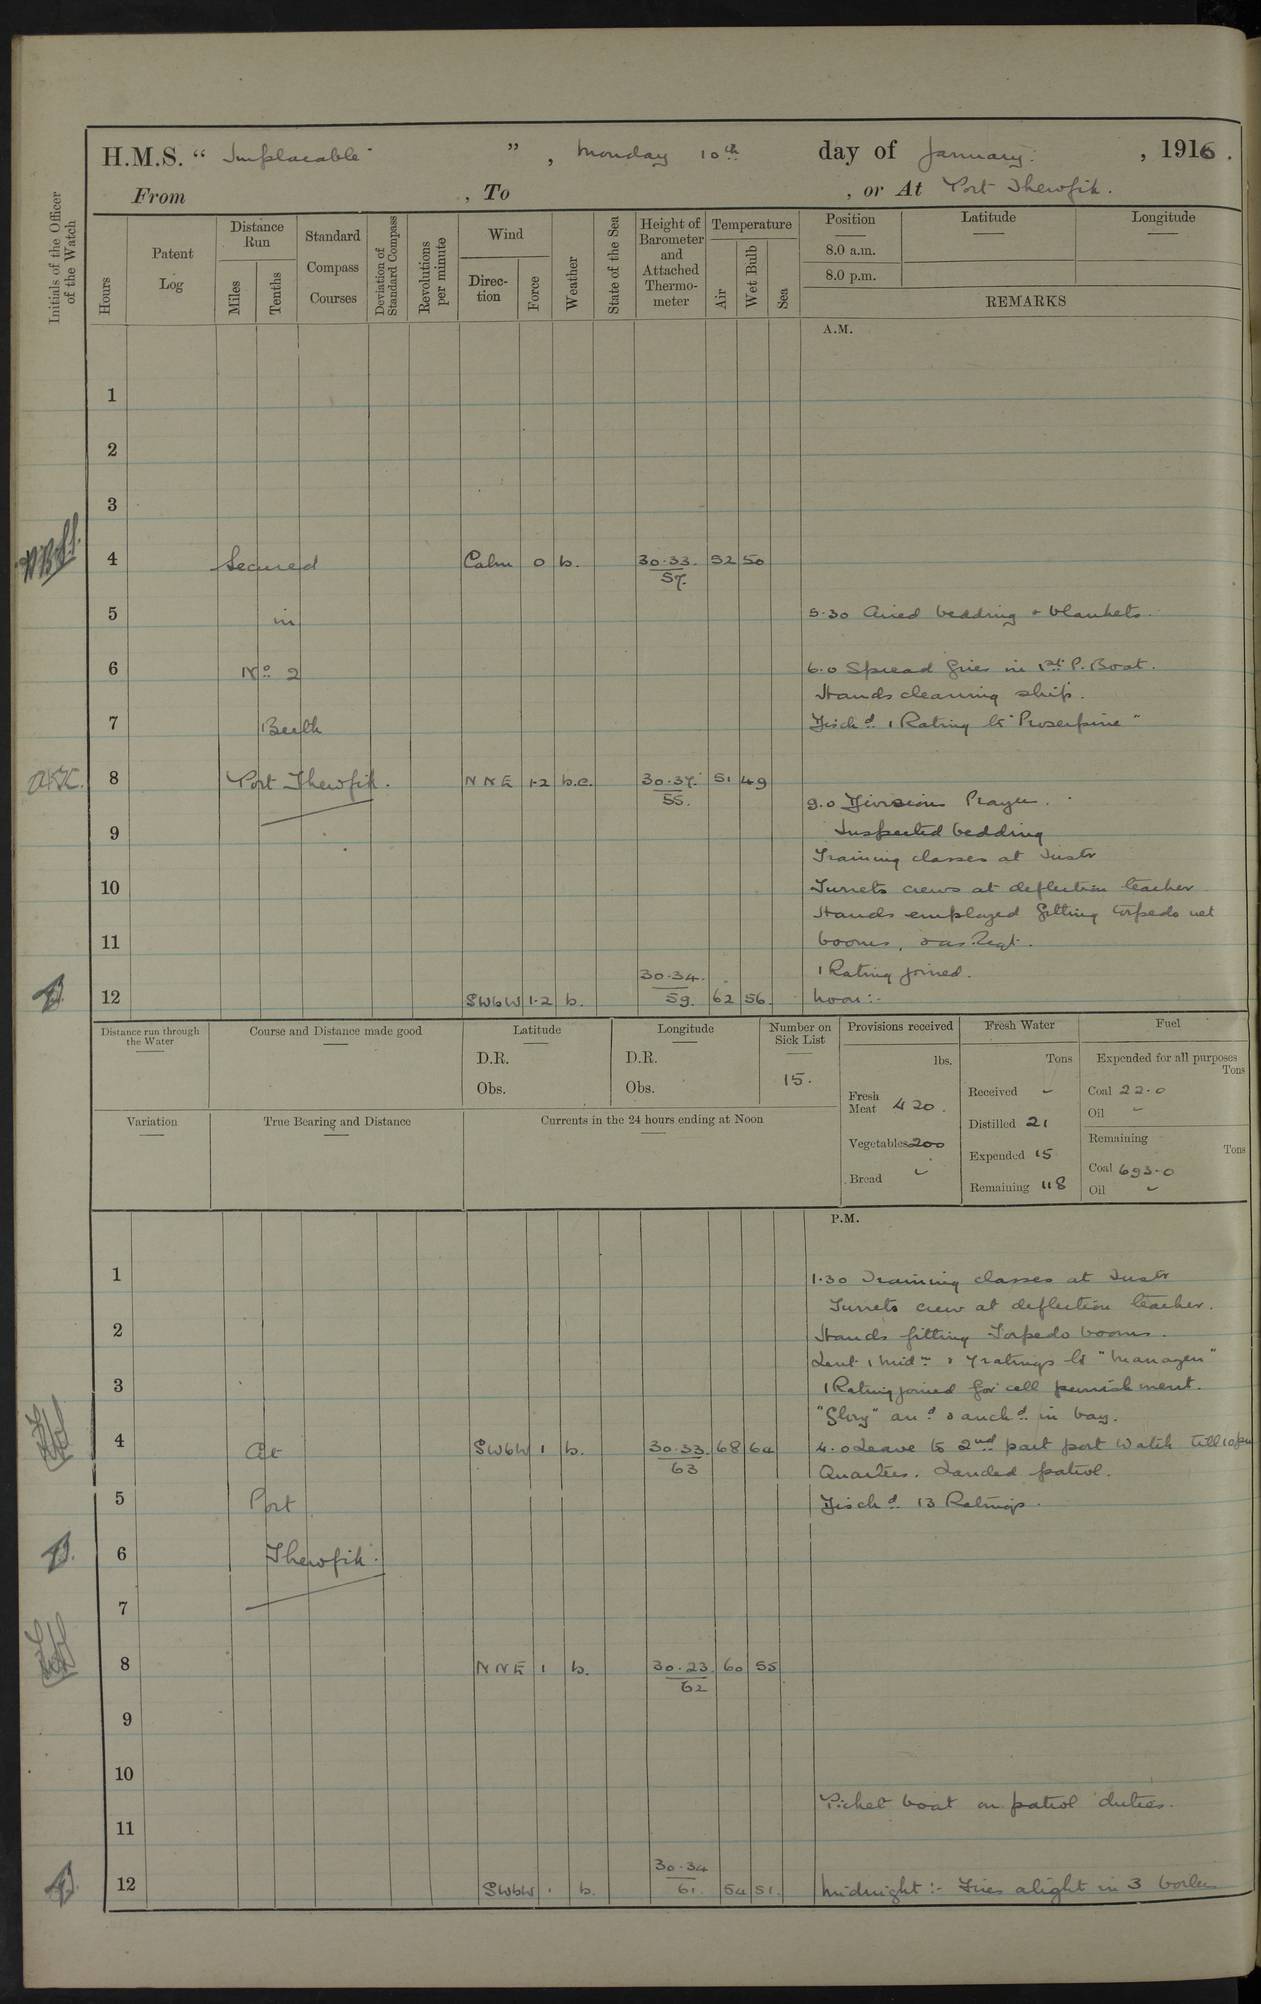 H.M.S. " Implacable " , Monday 10th day of January , 1916.
From , To , or At Port Thewfik.
Initials of the Officer of the Watch
Hours
Patent Log
Distance Run
Miles
Tenths
Standard Compass Courses
Deviation of Standard Compass
Revolutions per minute
Wind
Direction
Force
Weather
State of the Sea
Height of Barometer and Attached Thermometer
Temperature
Air
Wet Bulb
Sea
Position
8.0 a.m.
8.0 p.m.
Latitude
Longitude
REMARKS
A.M.
1
2
3
4 Secured Calm 0 b. 30.33. 57. 52 50
5 in 5.30 Aired bedding & blankets
6 No 2 6.0 Spread fires in 1st P. Boat.
Hands cleaning ship.
7 Berth Disch'd 1 Rating to "Proserpine"
8 Port Thewfik. NNE 1-2 b.c. 30.37. 55. 51 49
9.0 Division Prayer.
9 Inspected bedding
Training classes at Instr
10 Turrets crews at deflection teacher
Hands employed fitting torpedo net
11 booms, & as reqt.
1 Rating joined.
12 SWbW 1-2 b. 30.34. 59. 62 56. Noon:-
Distance run through the Water
Course and Distance made good
Latitude
D.R.
Obs.
Longitude
D.R.
Obs.
Number on Sick List
15.
Provisions received
lbs.
Fresh Meat 420.
Vegetables 200
Bread -
Fresh Water
Tons
Received -
Distilled 21
Expended 15
Remaining 118
Fuel
Expended for all purposes
Tons
Coal 22.0
Oil -
Remaining
Tons
Coal 693.0
Oil -
Variation
True Bearing and Distance
Currents in the 24 hours ending at Noon
P.M.
1 1.30 Training classes at Instr
Turrets crew at deflection teacher.
2 Hands fitting Torpedo booms.
Lent 1 Mid'n & 7 ratings to
3 1 Rating joined for cell punishment.
"Glory" arr'd & anch'd in bay.
4 At SWbW 1 b. 30.33. 63 68 64 4.0 Leave to 2nd part port watch till 10 pm
Quarters. Landed patrol.
5 Port Disch'd 13 Ratings.
6 Thewfik.
7
8 NNE 1 b. 30.23. 62 60 55
9
10
Picket boat on patrol duties.
11
12 SWbW 1 b. 30.34 61. 54 51. Midnight:- Fires alight in 3 boilers